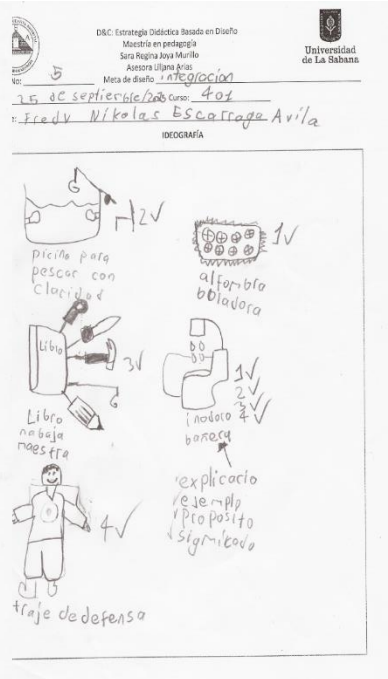 D&C: Estrategia Didáctica Basada en Diseño
Maestría en pedagogía
Sara Regina Joya Murillo
Asesora Liliana Arias
Universidad
de La Sabana
No: 5 Meta de diseño integracion
25 de septiembre/2015 Curso: 401
Fredy Nikolas Escarraga Avila
IDEOGRAFÍA
2✓
picina para
pescar con
claridad
1✓
alfombra
boladora
Libro
3✓
Libro
nabaja
maestra
1✓
2✓
3✓
4✓
inodoro
bañera
explicacio
ejemplo
proposito
significado
4✓
traje de defensa